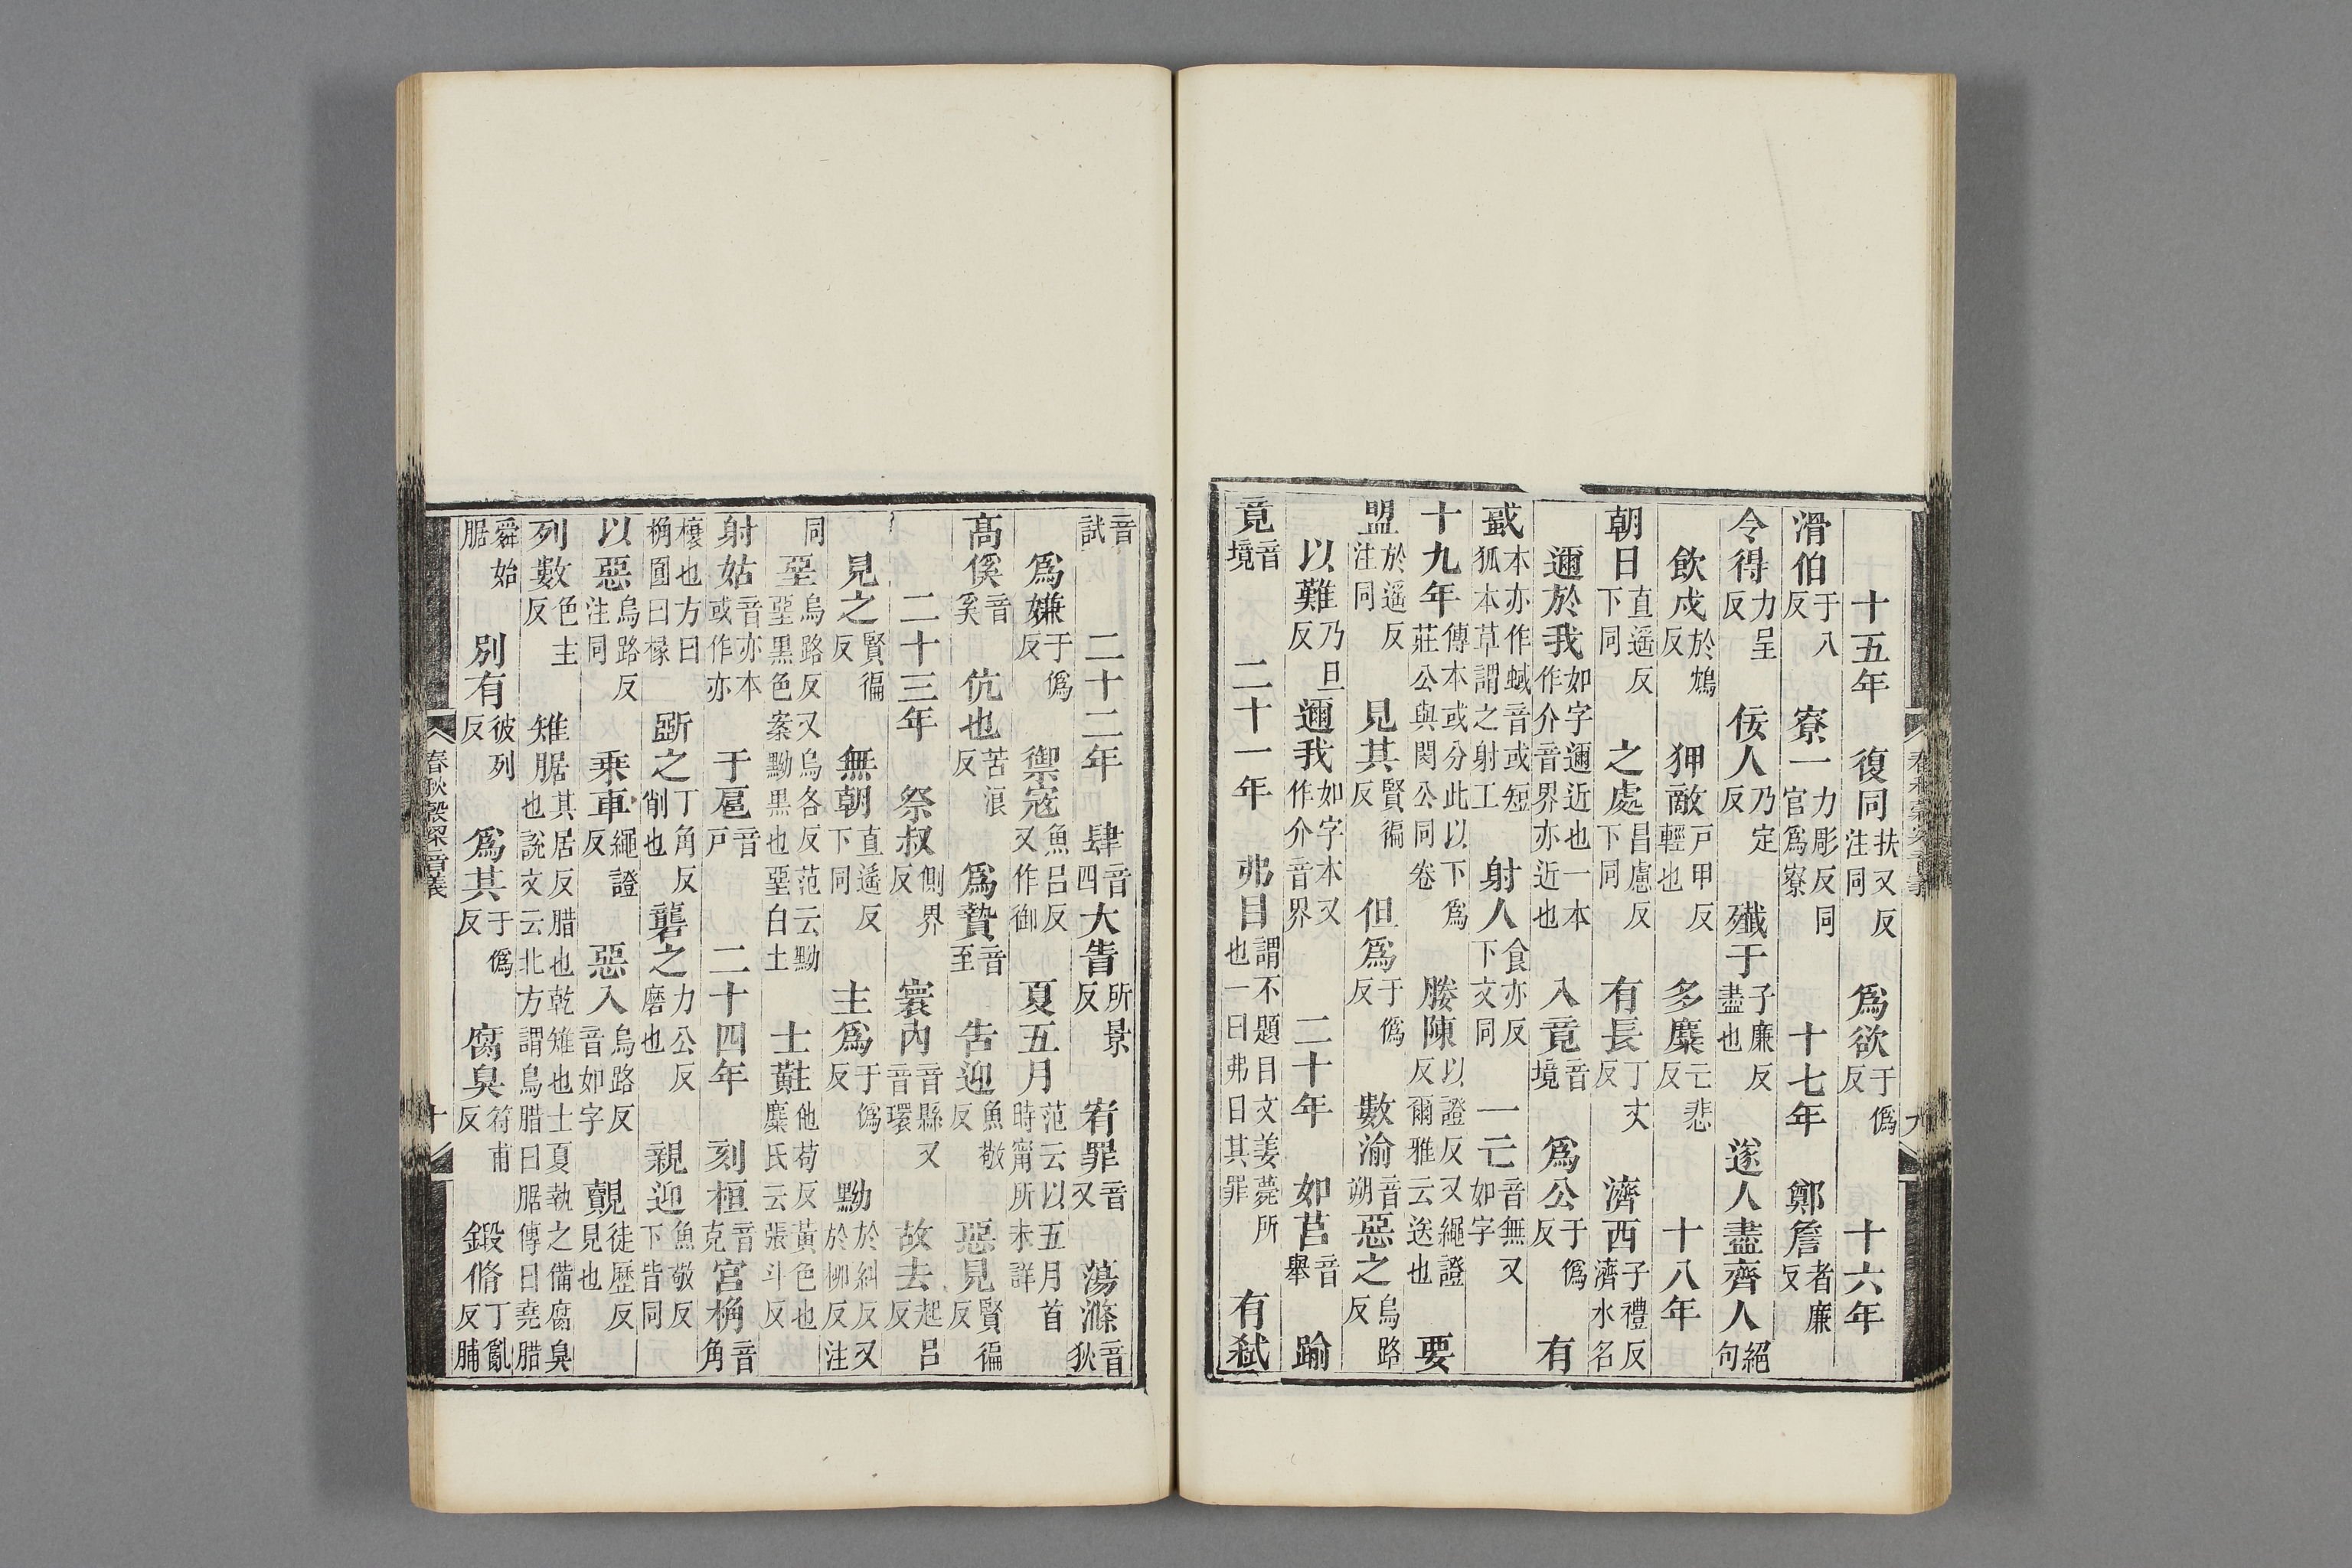 十五年　復同扶又反注同　爲欲于僞反　十六年
滑伯于八反　寮一力彫反同官爲寮　十七年　鄭詹者廉反
令得力呈反　佞人乃定反　殲于子廉反盡也　遂人盡齊人絕句
飲戍於鴆反　狎敵戶甲反輕也　多麋亡悲反　十八年
朝日直遥反下同　之處昌慮反下同　有長丁丈反　濟西子禮反濟水名
邇於我如字邇近也一本作介音界亦近也　入竟音境　爲公于僞反　有
蜮本亦作蜮音或短狐本草謂之射工　射人食亦反下文同　一亡音無又如字
十九年傳本或分此以下爲莊公與閔公同卷　媵陳以證反又繩證反爾雅云送也　要
盟於遥反注同　見其賢徧反　但爲于僞反　數渝音朔　惡之烏路反
以難乃旦反　邇我如字本又作介音界　二十年　如莒音舉　踰
竟音境　二十一年　弗目謂不題目文姜薨所也一曰弗日其罪　有弑
音試　二十二年　肆音四　大眚所景反　宥罪音又　蕩滌音狄
爲嫌于僞反　禦寇魚呂反又作御　夏五月范云以五月首時甯所未詳
高傒音奚　伉也苦浪反　爲贄音至　告迎魚敬反　惡見賢徧反
二十三年　祭叔側界反　寰內音縣又音環　故去起呂反
見之賢徧反　無朝直遥反下同　主爲于僞反　黝於糾反又於柳反注
同　堊烏路反又烏各反范云黝堊黒色案黝黒也堊白土　士黈他苟反黃色也麋氏云張斗反
射姑音亦本或作亦　于扈音戶　二十四年　刻桓音克　宮桷音角
榱也方曰桷圓曰椽　斲之丁角反削也　礱之力公反磨也　親迎魚敬反下皆同
以惡烏路反注同　乗車繩證反　惡入烏路反音如字　覿徒歷反見也
列數色主反　雉腒其居反腊也乾雉也士夏執之備腐臭也說文云北方謂鳥腊曰腒傳曰堯腊
舜始腒　別有彼列反　爲其于僞反　腐臭符甫反　鍛脩丁亂反脯
春秋穀梁音義
九
春秋穀梁音義
十